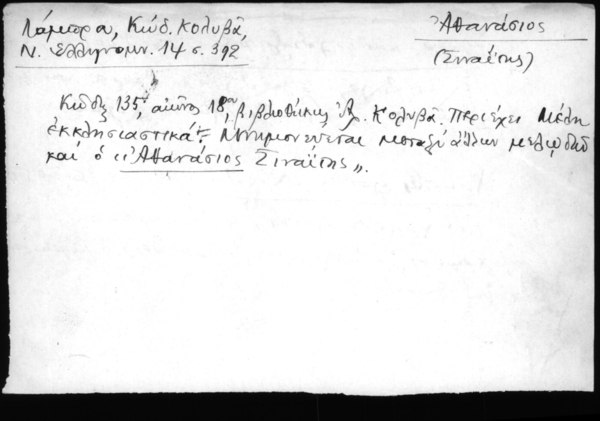 Λάμπρου, Κώδ. Κολυβᾶ,
Ν. Ἑλληνομν. 14 σ. 392
Ἀθανάσιος
(Σιναΐτης)
Κῶδιξ 135, αἰῶνος 18ου, βιβλιοθήκης Ἀλ. Κολυβᾶ. Περιέχει Μέλη
ἐκκλησιαστικά. Μνημονεύεται μεταξύ ἄλλων μελῳδῶν
καί ὁ «Ἀθανάσιος Σιναΐτης».